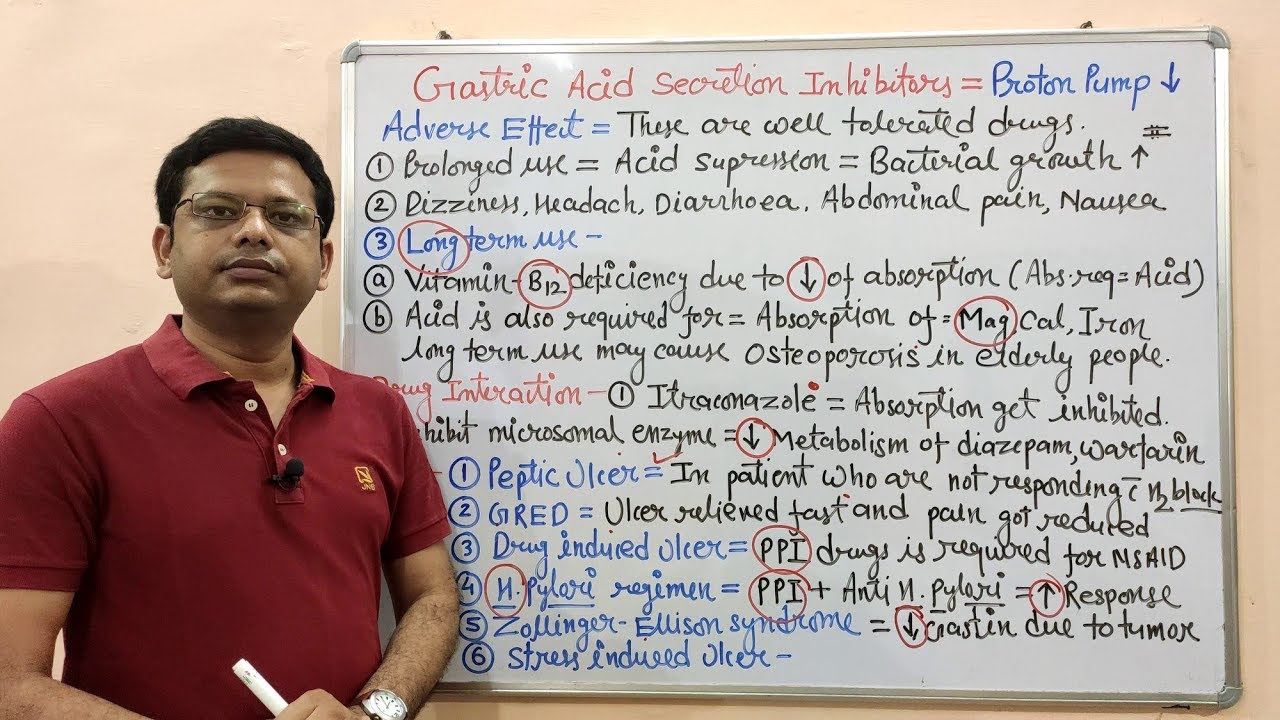 Gastric Acid Secretion Inhibitors = Proton Pump ↓
Adverse Effect = These are well tolerated drugs.
① Prolonged use = Acid supression = Bacterial growth ↑
② Dizziness, Headach, Diarrhoea. Abdominal pain, Nausea
③ Long term use -
ⓐ Vitamin-B12 deficiency due to ↓ of absorption (Abs.req=Acid)
ⓑ Acid is also required for = Absorption of = Mag Cal, Iron
long term use may cause Osteoporosis in elderly people.
Drug Interaction - ① Itraconazole = Absorption get inhibited.
hibit microsomal enzyme = ↓ Metabolism of diazepam, warfarin
- ① Peptic Ulcer = In patient who are not responding c̄ H2 block
② GRED = Ulcer relieved fast and pain got reduced
③ Drug induced Ulcer = PPI drugs is required for NSAID
④ H. Pylari regimen = PPI + Anti H. Pylari = ↑ Response
⑤ Zollinger-Ellison syndrome = ↓ Gastin due to tumor
⑥ Stress induced Ulcer -
JNB